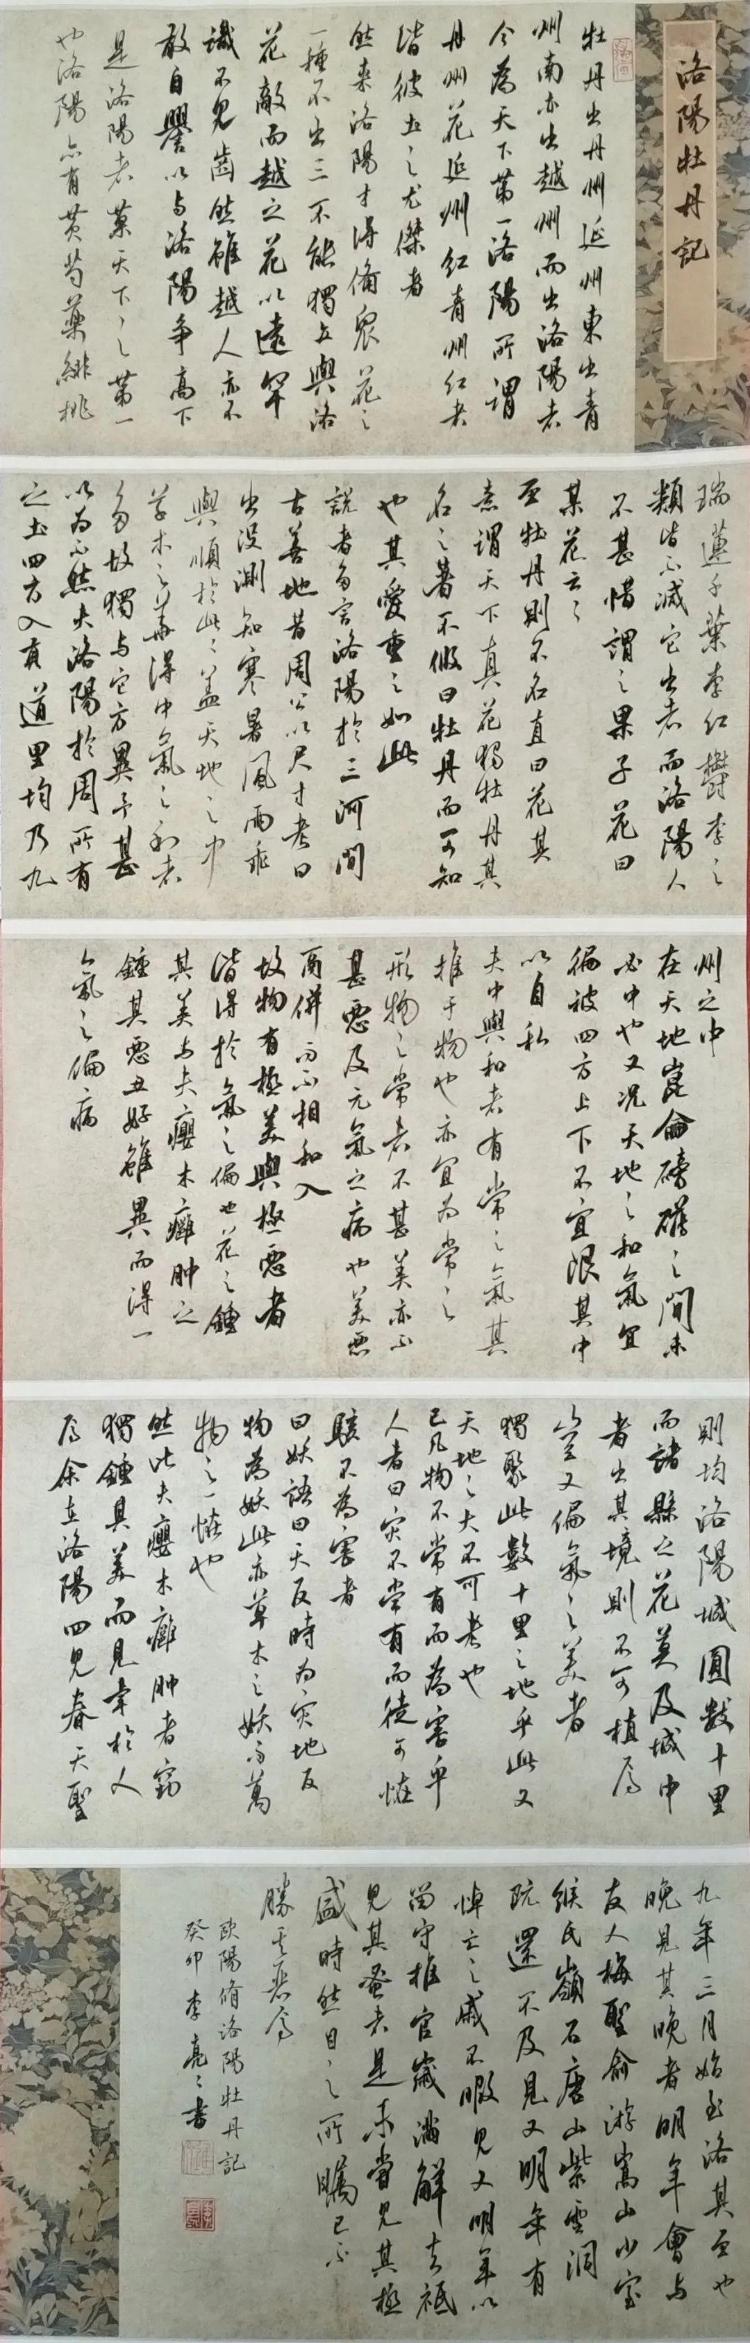 洛陽牡丹記
牡丹出丹州延州東出青
州南亦出越州而出洛陽者
今為天下第一洛陽所謂
丹州花延州紅青州紅者
皆彼土之尤傑者
然来洛陽才得備眾花之
一種不出三不能獨立與洛
花敵而越之花以遠罕
識不見齒然雖越人亦不
敢自譽以与洛陽争高下
是洛陽者菓天下之第一
也洛陽亦有黄芍藥緋桃
瑞蓮千葉李紅鬱李之
類皆不減它出者而洛陽人
不甚惜謂之果子花曰
某花云云
至牡丹則不名直曰花其
意謂天下真花獨牡丹其
名之著不假曰牡丹而可知
也其愛重之如此
說者多言洛陽於三河間
古善地昔周公以尺寸考日
出没測知寒暑風雨乖
與順於此此蓋天地之中
草木之華得中氣之和者
多故獨与它方異予甚
以為不然夫洛陽於周所有
之土四方入貢道里均乃九
州之中
在天地崑崙磅礴之間未
必中也又況天地之和氣宜
徧被四方上下不宜限其中
以自私
夫中與和者有常之氣其
推于物也亦宜為常之
形物之常者不甚美亦不
甚惡及元氣之病也美惡
鬲併而不相和入
故物有極美與極惡者
皆得於氣之偏也花之鍾
其美与夫癭木癰肿之
鍾其惡丑好雖異而得一
氣之偏病
則均洛陽城圓數十里
而諸縣之花莫及城中
者出其境則不可植焉
豈又偏氣之美者
獨聚此數十里之地乎此又
天地之大不可考也
已凡物不常有而為害乎
人者曰災不常有而徒可怪
駭不為害者
曰妖語曰天反時為災地反
物為妖此亦草木之妖而萬
物之一怪也
然比夫癭木癰肿者竊
獨鍾其美而見幸於人
焉余在洛陽四見春天聖
九年三月始至洛其至也
晚見其晚者明年會与
友人梅聖俞游嵩山少室
緱氏嶺石唐山紫雲洞
既還不及見又明年有
悼亡之戚不暇見又明年以
留守推官歲滿解去祗
見其蚤者是未嘗見其極
盛時然目之所矚已不
勝其麗焉
歐陽脩洛陽牡丹記
癸卯李亮亮書